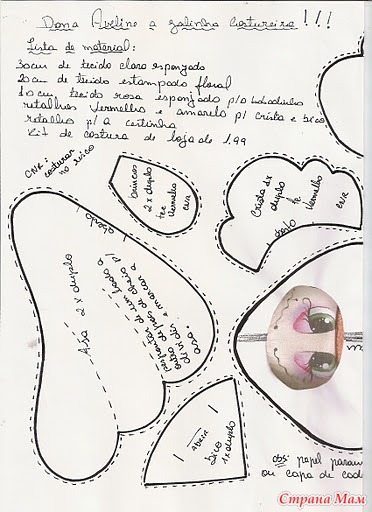 Dona Aveline a galinha costureira!!!
Lista de material:
30cm de tecido claro esponjado
20cm de tecido estampado floral
10cm tecido rosa esponjado p/o babadinho
retalhos vermelho e amarelo p/ crista e bico
retalho p/ a cestinha
Kit de costura de loja de 1,99
CNR: costurar
no risco
brincos
2x duplo
tec
vermelho
CNR
Crista 1x
duplo
tc
vermelho
CNR
aberto
aberto
Asa 2x duplo
asa.
abrir
bico
1x duplo
obs: papel
ou capa de cad
Страна Мам